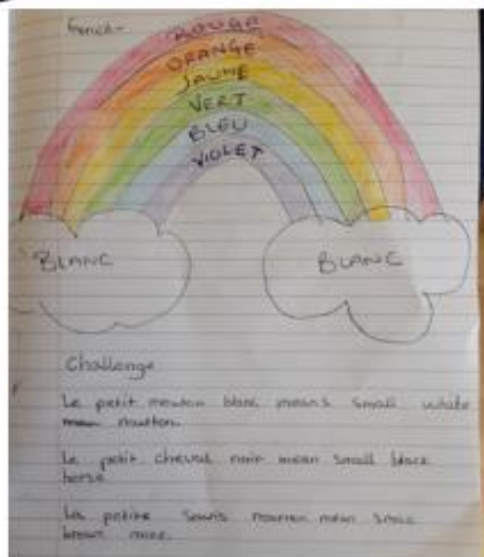 French-
ROUGE
ORANGE
JAUNE
VERT
BLEU
VIOLET
BLANC BLANC
Challenge
Le petit mouton blanc means small white
Le petit cheval noir mean small black
horse
petite souris mean small
brown